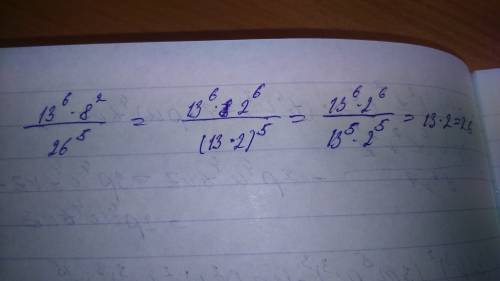 13⁶·8²/26⁵ = 13⁶·2⁶/(13·2)⁵ = 13⁶·2⁶/13⁵·2⁵ = 13·2=26